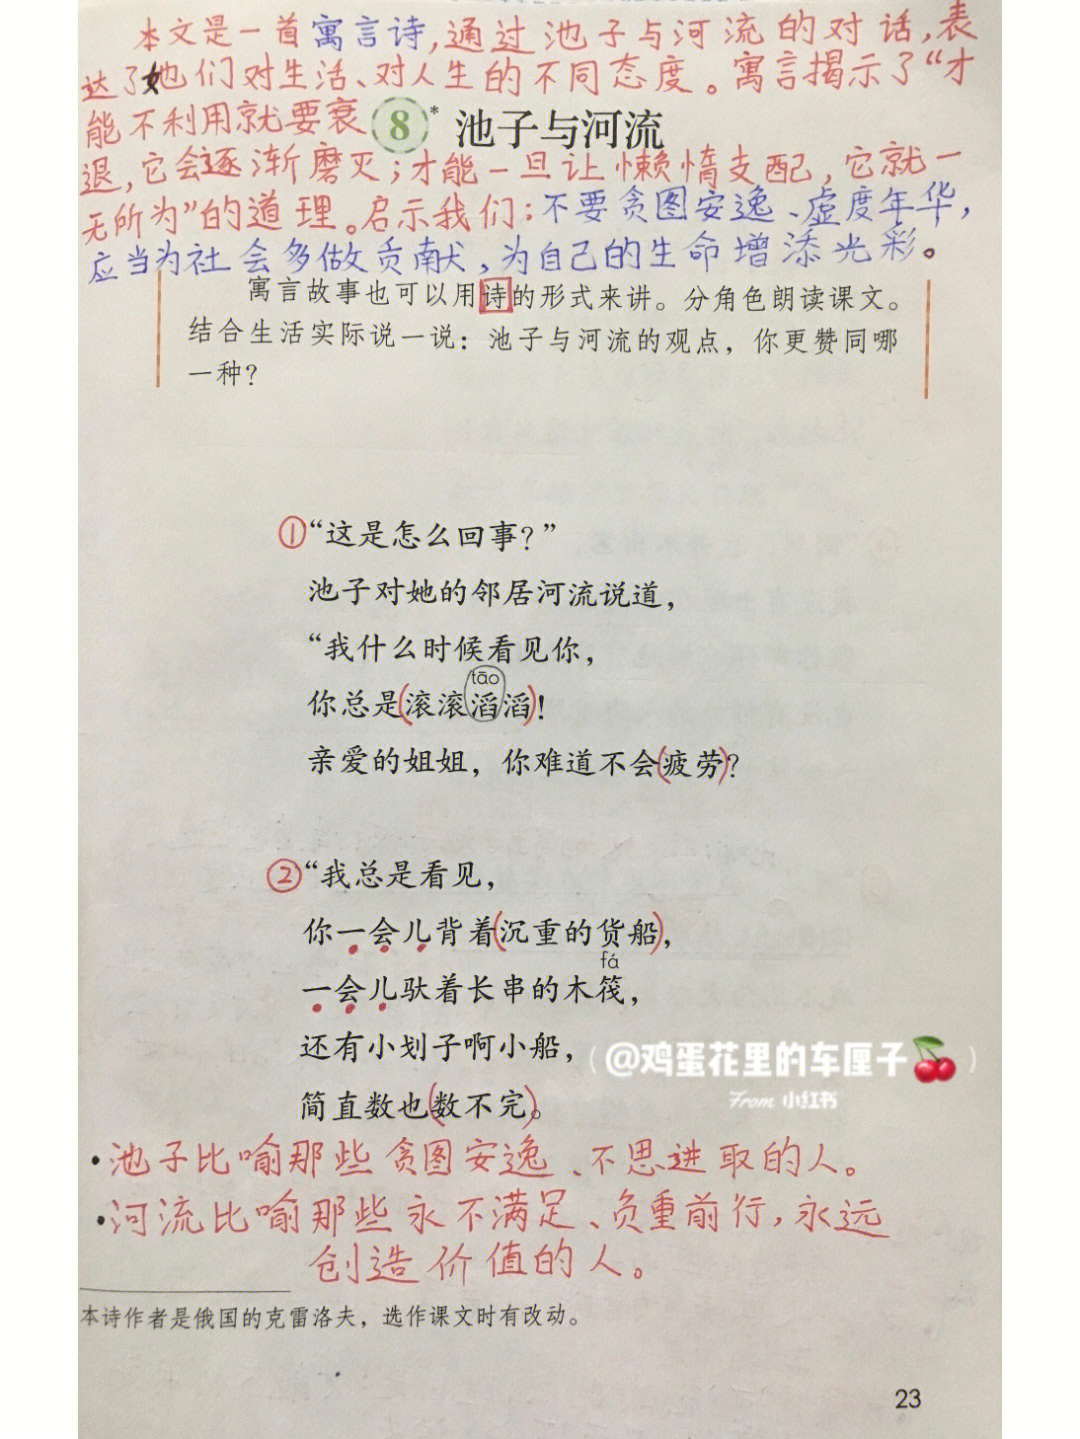 本文是一首寓言诗,通过池子与河流的对话,表
达了她们对生活、对人生的不同态度。寓言揭示了“才
能不利用就要衰
8* 池子与河流
退,它会逐渐磨灭;才能一旦让懒惰支配,它就一
无所为”的道理。启示我们:不要贪图安逸、虚度年华,
应当为社会多做贡献,为自己的生命增添光彩。
寓言故事也可以用诗的形式来讲。分角色朗读课文。
结合生活实际说一说：池子与河流的观点，你更赞同哪
一种？
①“这是怎么回事？”
池子对她的邻居河流说道，
“我什么时候看见你，
tāo
你总是(滚滚滔滔)！
亲爱的姐姐，你难道不会(疲劳)？
②“我总是看见，
你一会儿背着(沉重的货船)，
fá
一会儿驮着长串的木筏，
还有小划子啊小船，
(@鸡蛋花里的车厘子🍒)
From 小红书
简直数也(数不完)。
•池子比喻那些贪图安逸、不思进取的人。
•河流比喻那些永不满足、负重前行,永远
创造价值的人。
本诗作者是俄国的克雷洛夫，选作课文时有改动。
23